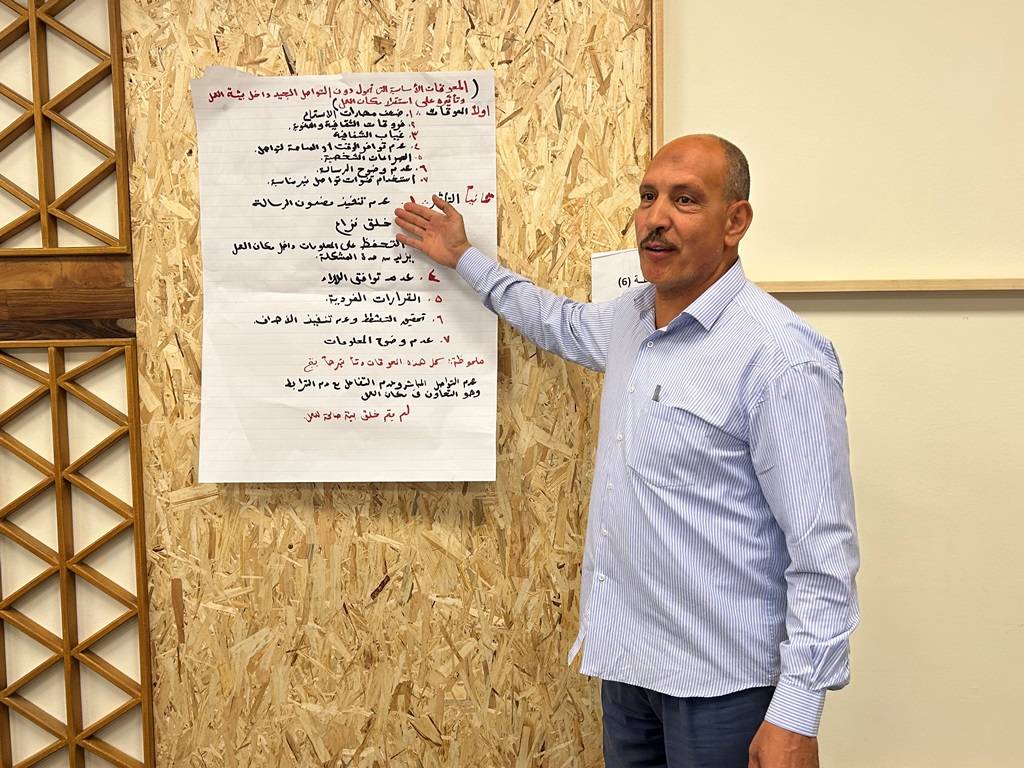 ( المعوقات الأساسية التي تحول دون التواصل الجيد داخل بيئة العمل
وتأثيره على استقرار مكان العمل)
اولاً المعوقات : ١. ضعف مهارات الاستماع
٢. فروقات الثقافية واللغوية.
٣. غياب الشفافية
٤. عدم توافر الوقت أو المساحة لتواصل.
٥. الصراعات الشخصية.
٦. عدم وضوح الرسالة.
٧. استخدام قنوات تواصل غير مناسبة.
ثانياً عدم تنفيذ مضمون الرسالة
خلق نزاع
التحفظ على المعلومات داخل مكان العمل
يزيد من مدة المشكلة.
٤. عدم توافق الآراء
٥. القرارات الفردية.
٦. وعدم تنفيذ الأهداف.
٧. عدم وضوح المعلومات
ملحوظة: كل هذه المعوقات
عدم التواصل المباشر وعدم التفاعل مع عدم الترابط
التعاون في مكان العمل
لم يتم خلق بيئة صالحة للعمل
(6)